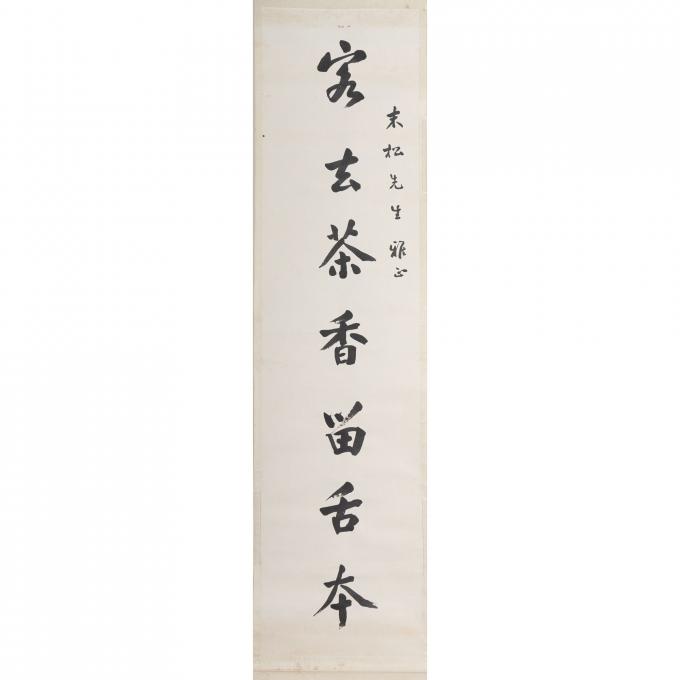 末松先生雅正
客去茶香留舌本